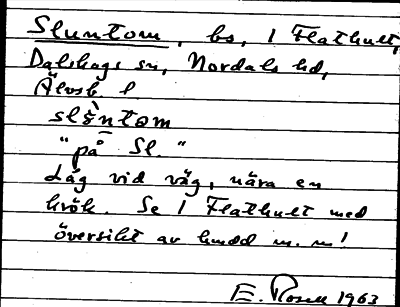 Sluntom, bs, 1 Flathult,
Dalskogs sn, Nordals hd,
Älvsb. l
slèntom
"på Sl."
Låg vid väg, nära en
krök. Se 1 Flathult med
översikt av hmdd m. m!
E. Rosell 1963